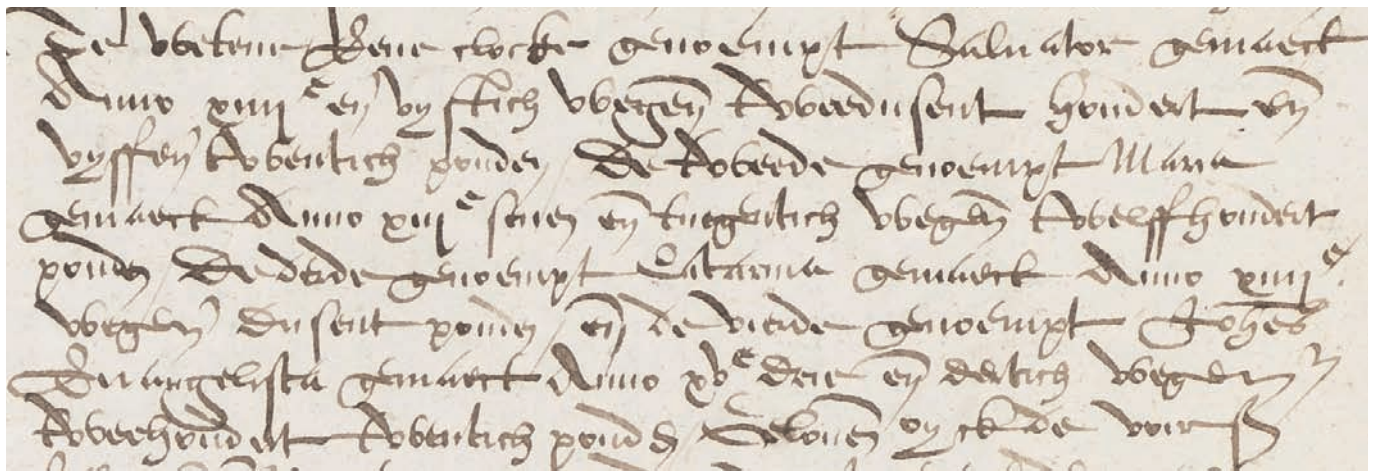 Te wetene Eene clocke genoempt Saluator gemaeckt
Anno xiiijᶜ en̄ vyfftich wegen̄ tweedusent hondert en̄
vyffen̄ twentich ponden / De tweede genoempt Maria
gemaeckt Anno xiiijᶜ seuen en̄ tnegentich wegen̄ twelffhondert
ponden / De derde genoempt Catarina gemaeckt Anno xiiijᶜ
wegen̄ dusent ponden / en̄ de vierde genoempt Joh̄es
Euangelista gemaeckt Anno xvᶜ drie en̄ dertich wegen̄
tweehondert twentich pond / Gelouen̄ oyck de voirs